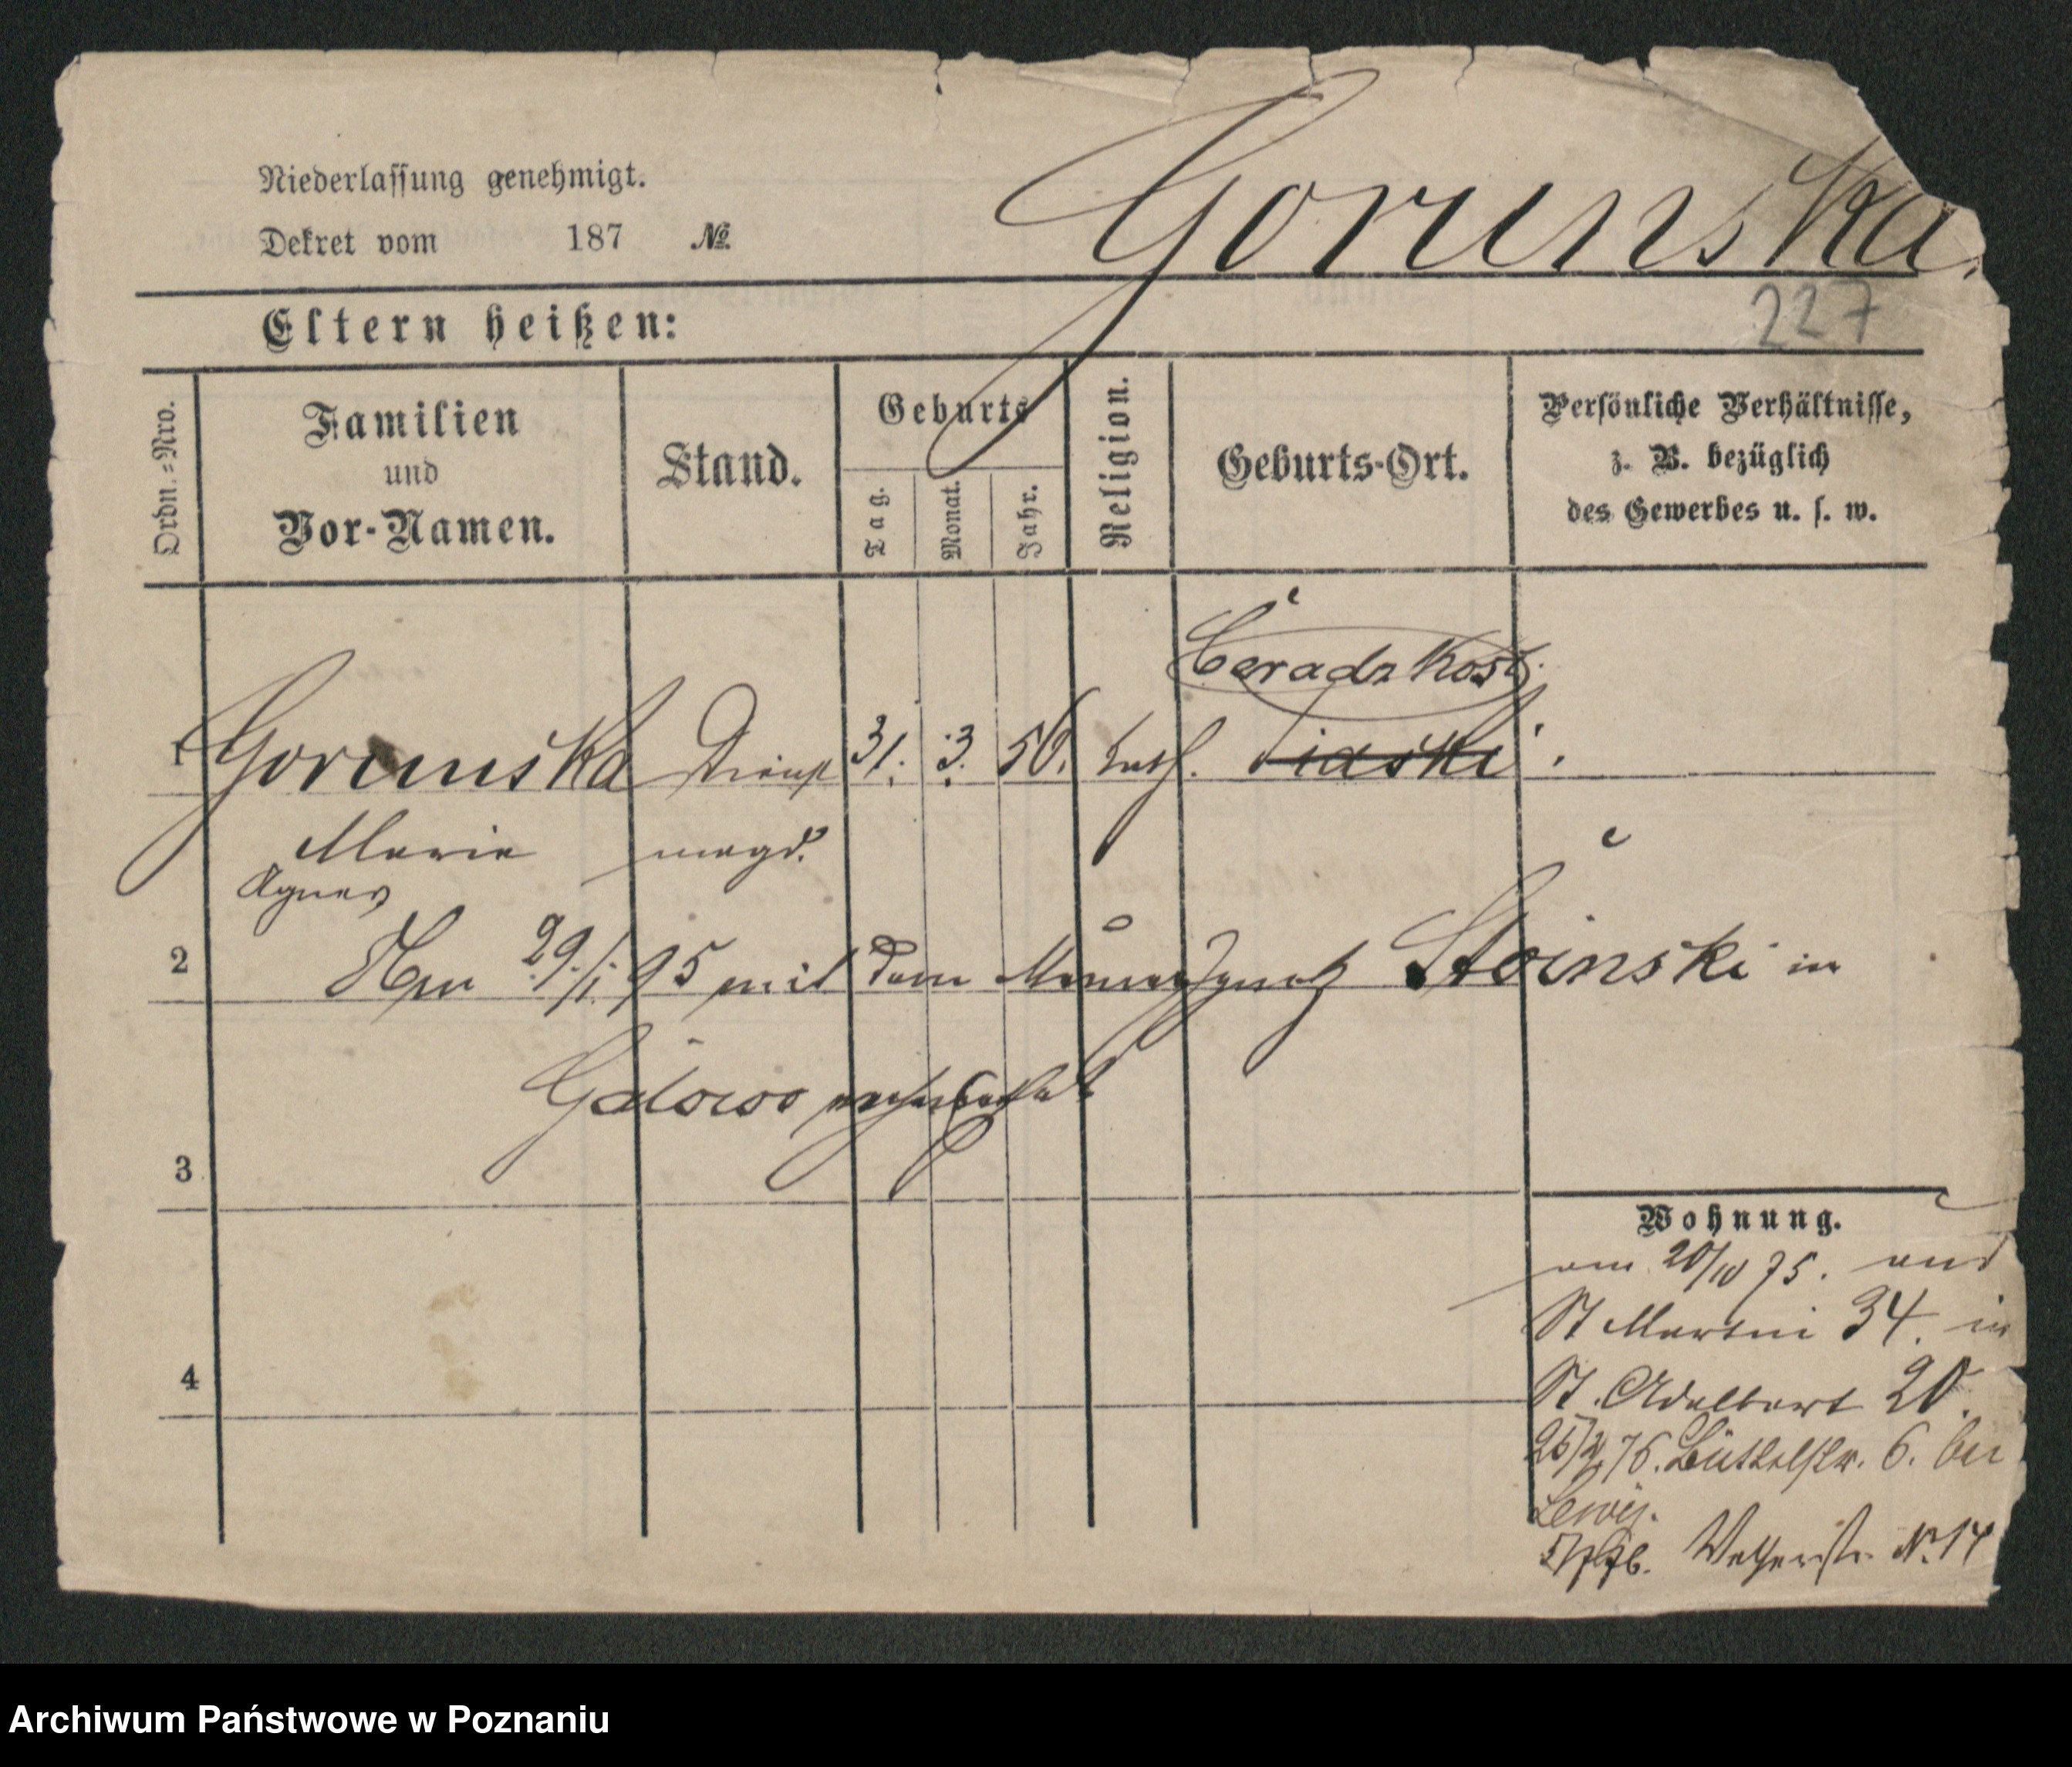 Niederlassung genehmigt.
Dekret vom 187 №
Gorunska.
227
Eltern heißen:
Ordn.=Nro.
Familien
und
Vor-Namen.
Stand.
Geburts
Tag.
Monat.
Jahr.
Religion.
Geburts-Ort.
Persönliche Verhältnisse,
z. B. bezüglich
des Gewerbes u. s. w.
Ceradz Kosc.
1 Gorunska Dienst 31. 3. 56. kath.
Marie magd.
Agnes
2 29./1. 95 mit dem Maurer Ignatz Stoinski in
3
4
Wohnung.
am 20/10 75. und
St Martin 34. in
St. Adalbert 20.
75. Büttelstr. 6. bei
Lewij.
N. 14
Archiwum Państwowe w Poznaniu